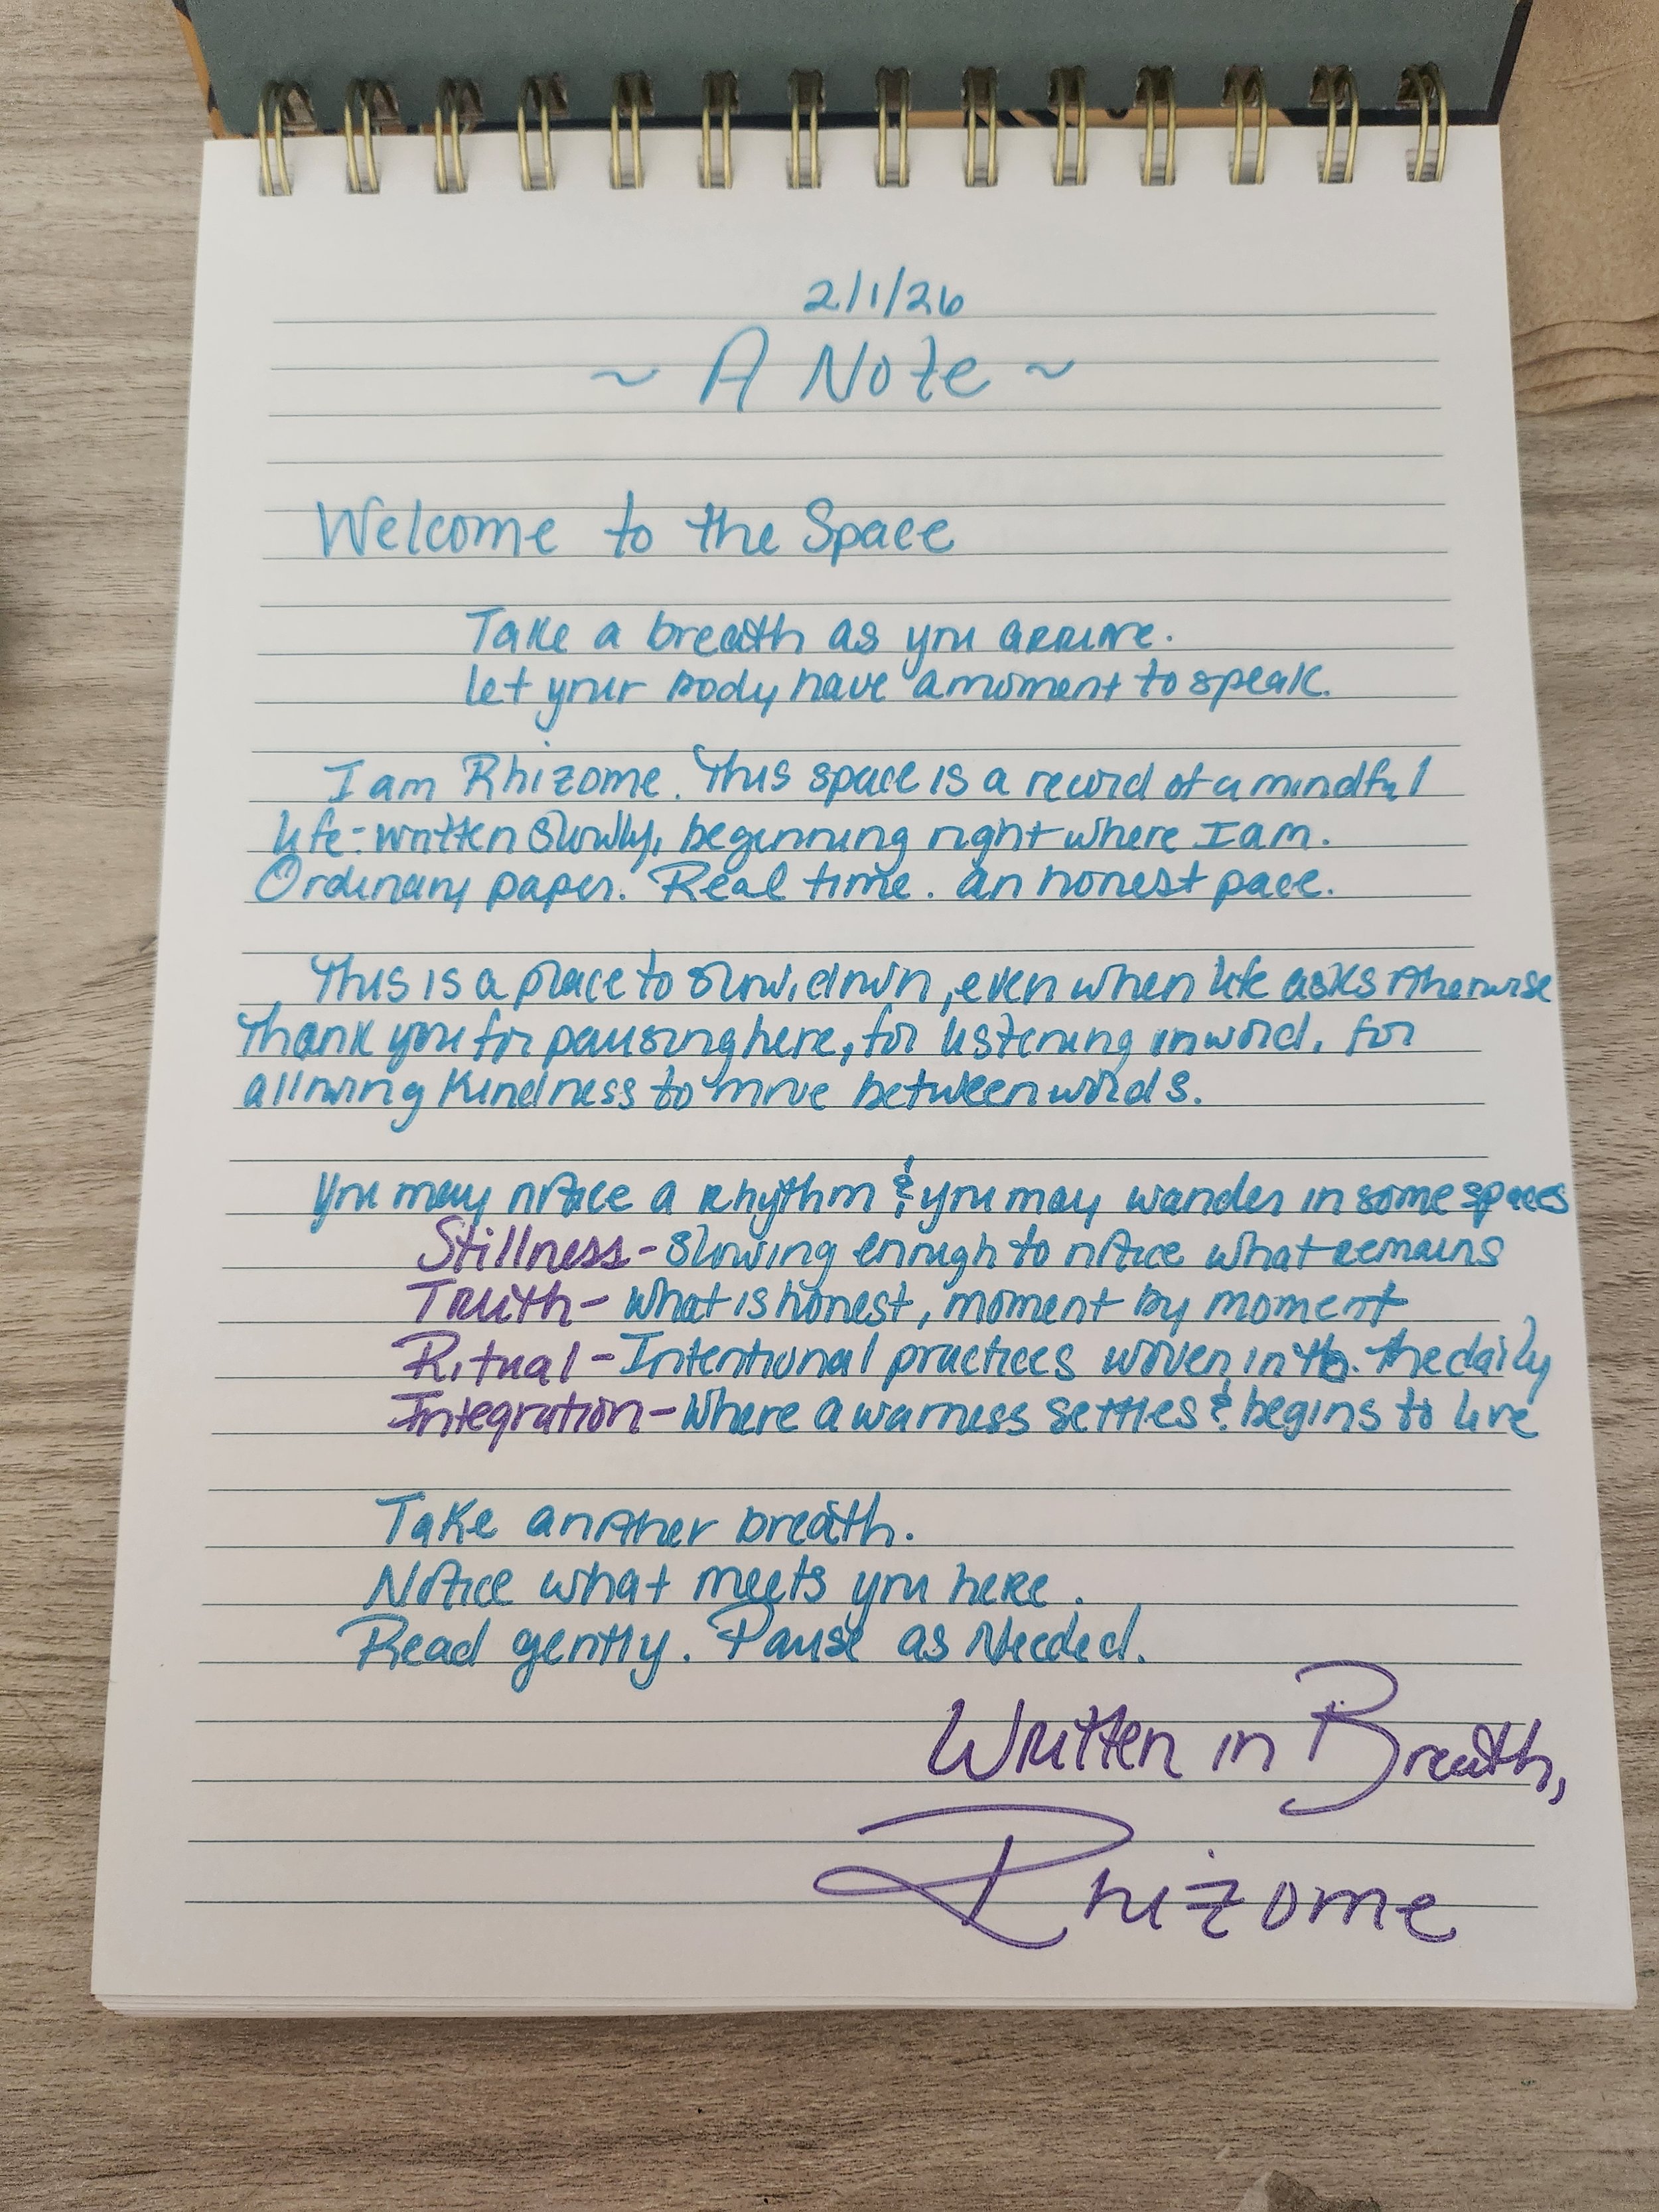 2/1/26
~ A Note ~
Welcome to the Space
Take a breath as you arrive.
Let your body have a moment to speak.
I am Rhizome. This space is a record of a mindful
life - written slowly, beginning right where I am.
Ordinary paper. Real time. An honest pace.
This is a place to slow down, even when life asks otherwise
Thank you for pausing here, for listening inword, for
allowing kindness to move between words.
You may notice a rhythm & you may wander in some spaces
Stillness - Slowing enough to notice what remains
Truth - What is honest, moment by moment
Ritual - Intentional practices woven into the daily
Integration - Where awarness settles & begins to live
Take another breath.
Notice what meets you here.
Read gently. Pause as Needed.
Written in Breath,
Rhizome